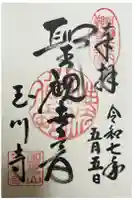 奉拝
令和七年
五月五日
聖観世音
玉川寺